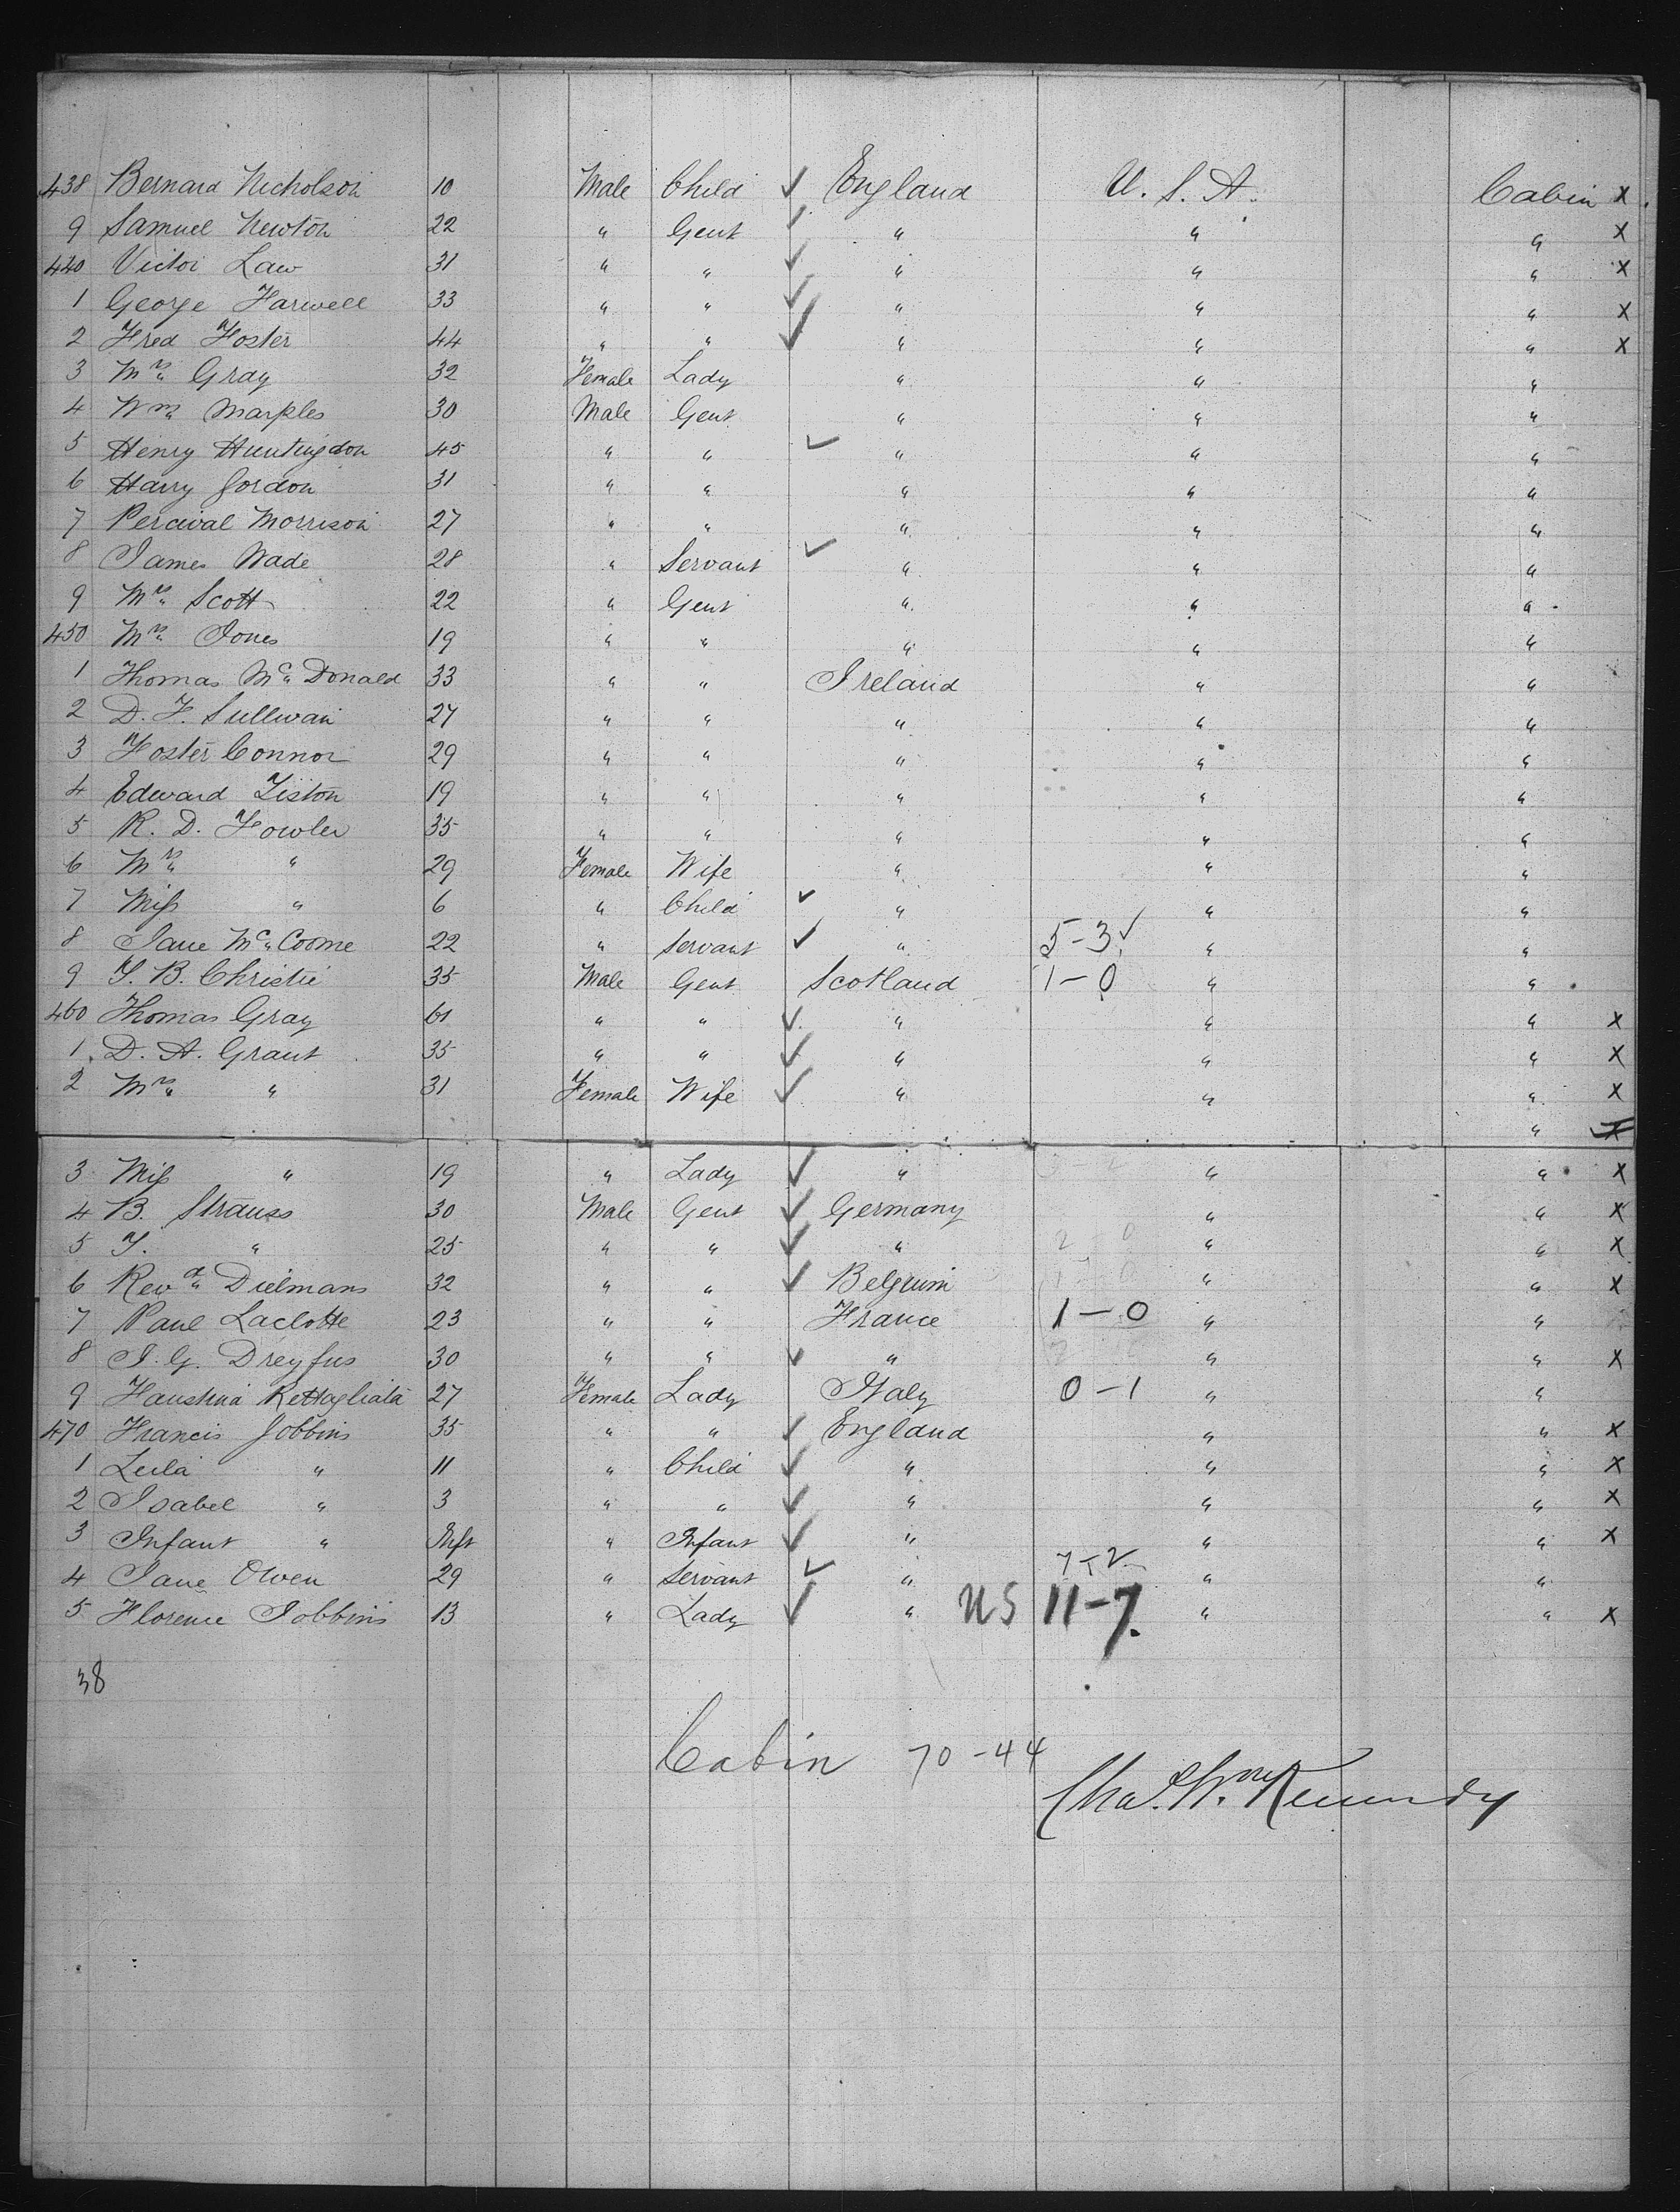 438 Bernard Nicholson 10 Male Child ✓ England U. S. A. Cabin X
9 Samuel Newton 22 " Gent ✓ " " " X
440 Victor Law 31 " " ✓ " " " X
1 George Harwell 33 " " ✓ " " " X
2 Fred Foster 44 " " ✓ " " " X
3 Mrs Gray 32 Female Lady " " "
4 Wm Marples 30 Male Gent " " "
5 Henry Huntingdon 45 " " ✓ " " "
6 Harry Gordon 31 " " " " "
7 Percival Morrison 27 " " " " "
8 James Wade 28 " Servant ✓ " " "
9 Mrs Scott 22 " Gent " " "
450 Mrs Jones 19 " " " " "
1 Thomas Mc Donald 33 " " Ireland " "
2 D. F. Sullivan 27 " " " " "
3 Foster Connor 29 " " " " "
4 Edward Liston 19 " " " " "
5 R. D. Fowler 35 " " " " "
6 Mrs " 29 Female Wife " " "
7 Miss " 6 " Child ✓ " " "
8 Jane Mc 22 " Servant ✓ " 5-3 ✓ " "
9 J. B. Christie 35 Male Gent Scotland 1-0 " "
460 Thomas Gray 61 " " ✓ " " " X
1 D. A. Grant 35 " " ✓ " " " X
2 Mrs " 31 Female Wife ✓ " " " X
" X
3 Miss " 19 " Lady ✓ " " " X
4 B. Strauss 30 Male Gent ✓ Germany " " X
5 J. " 25 " " ✓ " 2-0 " " X
6 Revd Dielmans 32 " " ✓ Belgium " " X
7 Paul Laclotte 23 " " France 1-0 " "
8 J. G. Dreyfus 30 " " ✓ " " " X
9 Faustina Rettagliata 27 Female Lady Italy 0-1 " "
470 Francis Jobbins 35 " " ✓ England " " X
1 Leila " 11 " Child ✓ " " " X
2 Isabel " 3 " " ✓ " " " X
3 Infant " Inft " Infant ✓ " " " X
4 Jane Owen 29 " Servant ✓ " 7-2 " "
5 Florence Jobbins 13 " Lady ✓ " US 11-7. " " X
38
Cabin 70-44
Chas. Wm Kennedy